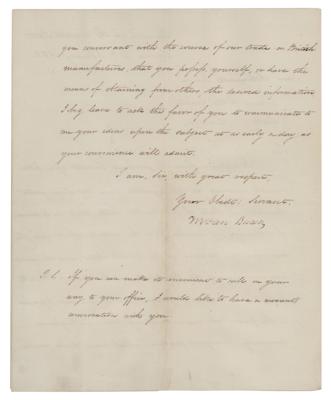 you conversant with the course of our trade in British
manufactures, that you possess, yourself, or have the
means of obtaining from others the desired information
I beg leave to ask the favor of you to communicate to
me your ideas upon the subject at as early a day as
your convenience will admit.
I am, Sir, with great respect,
Your Obedt: Servant.
M Van Buren
P.S. If you can make it convenient to call on your
way to your office, I would like to have a moment's
conversation with you